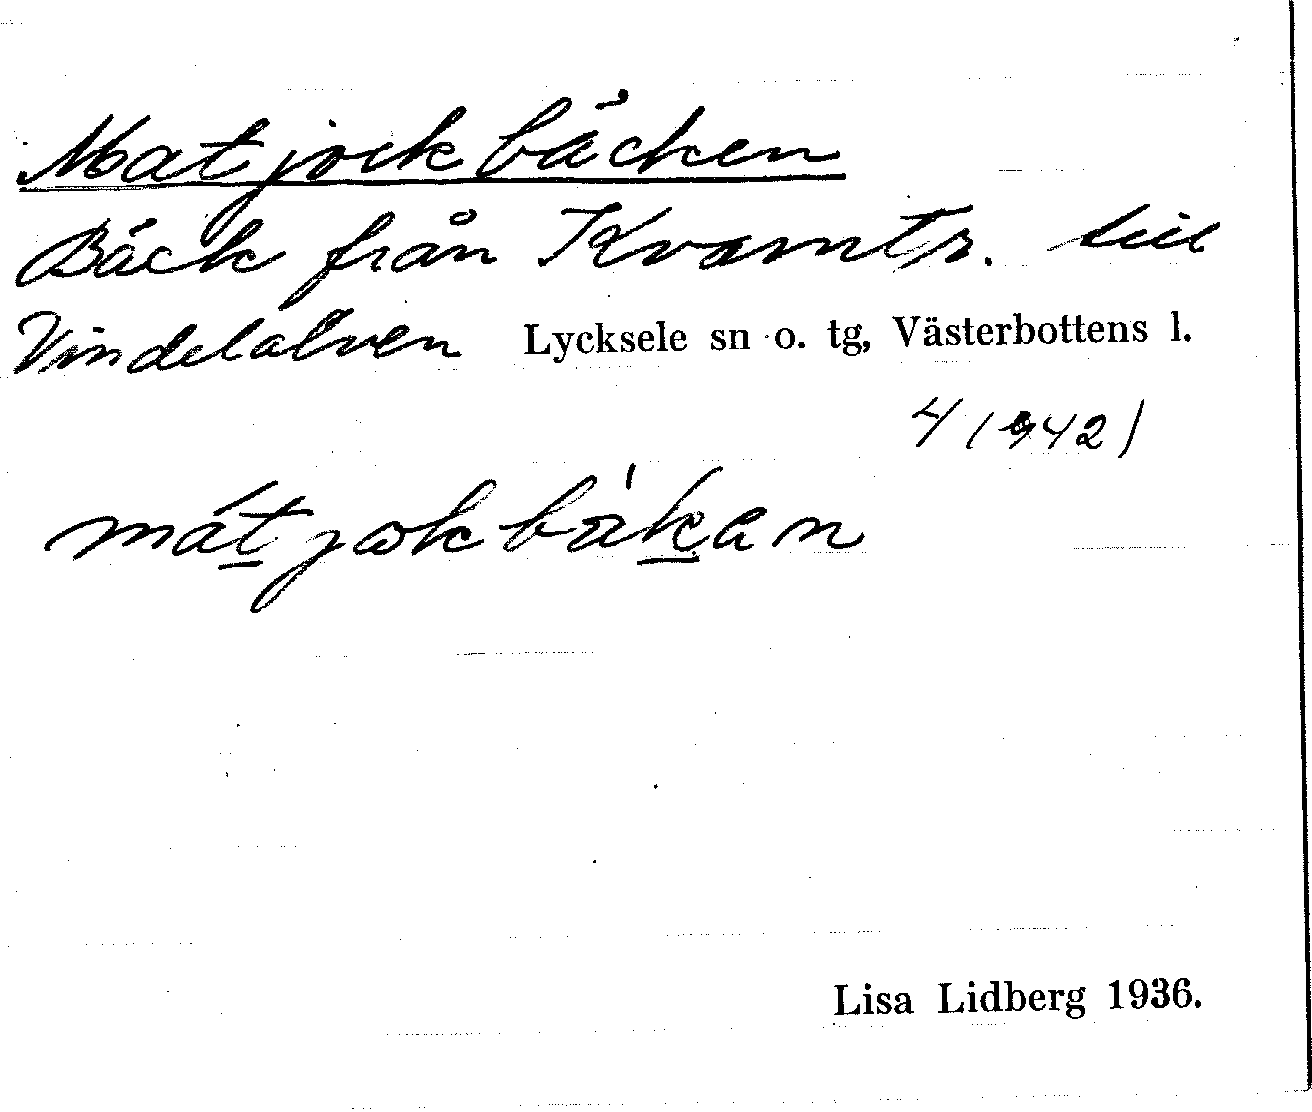 Matjockbäcken
Bäck från Kvarntr. till
Vindelälven Lycksele sn o. tg, Västerbottens l.
4 (942)
Lisa Lidberg 1936.